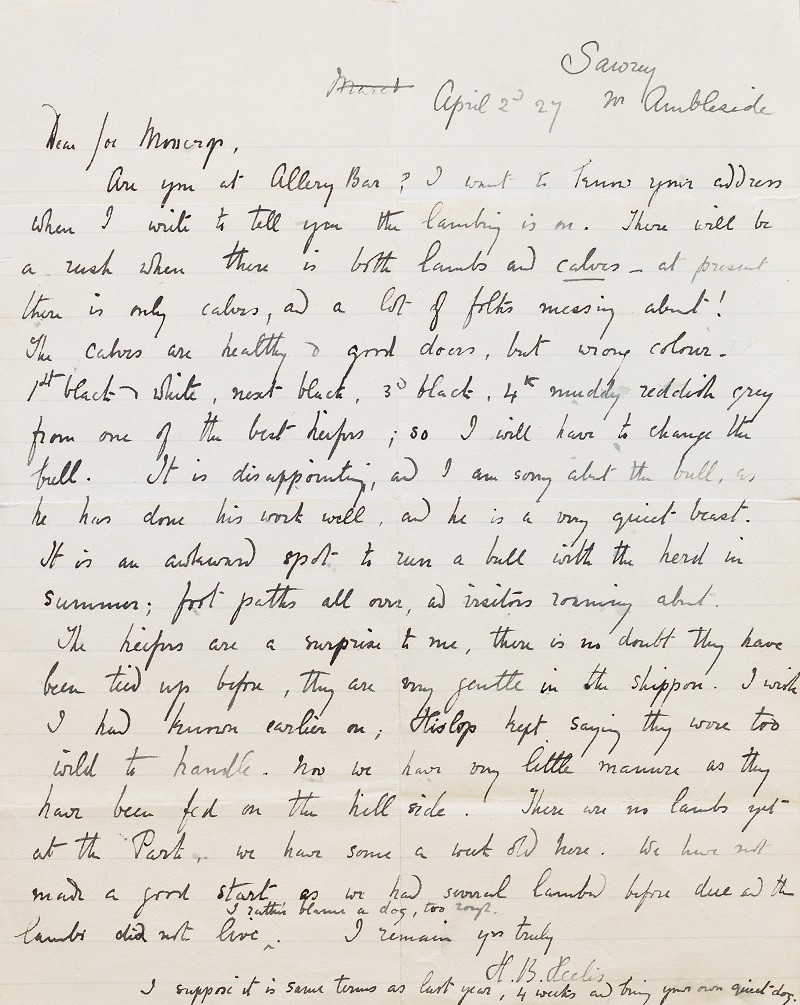 Sawrey
March April 2d 27 nr Ambleside
Dear Joe Moscrop,
Are you at Allery Bar? I want to know your address
when I write to tell you the lambing is on. There will be
a rush when there is both lambs and calves – at present
there is only calves, and a lot of folks messing about!
The calves are healthy & good doers, but wrong colour.
1st black & white, next black, 3d black, 4th muddy reddish grey
from one of the best heifers; so I will have to change the
bull. It is disappointing, and I am sorry about the bull, as
he has done his work well, and he is a very quiet beast.
It is an awkward spot to run a bull with the herd in
summer; foot paths all over, and visitors roaming about.
The heifers are a surprise to me, there is no doubt they have
been tied up before, they are very gentle in the shippon. I wish
I had known earlier on; Hislop kept saying they were too
wild to handle. Now we have very little manure as they
have been fed on the hill side. There are no lambs yet
at the Park, we have some a week old here. We have not
made a good start as we had several lambed before due and the
I rather blame a dog, too rough.
lambs did not live ^. I remain yrs truly
H. B. Heelis
I suppose it is same terms as last year, 4 weeks and bring your own quiet dog.